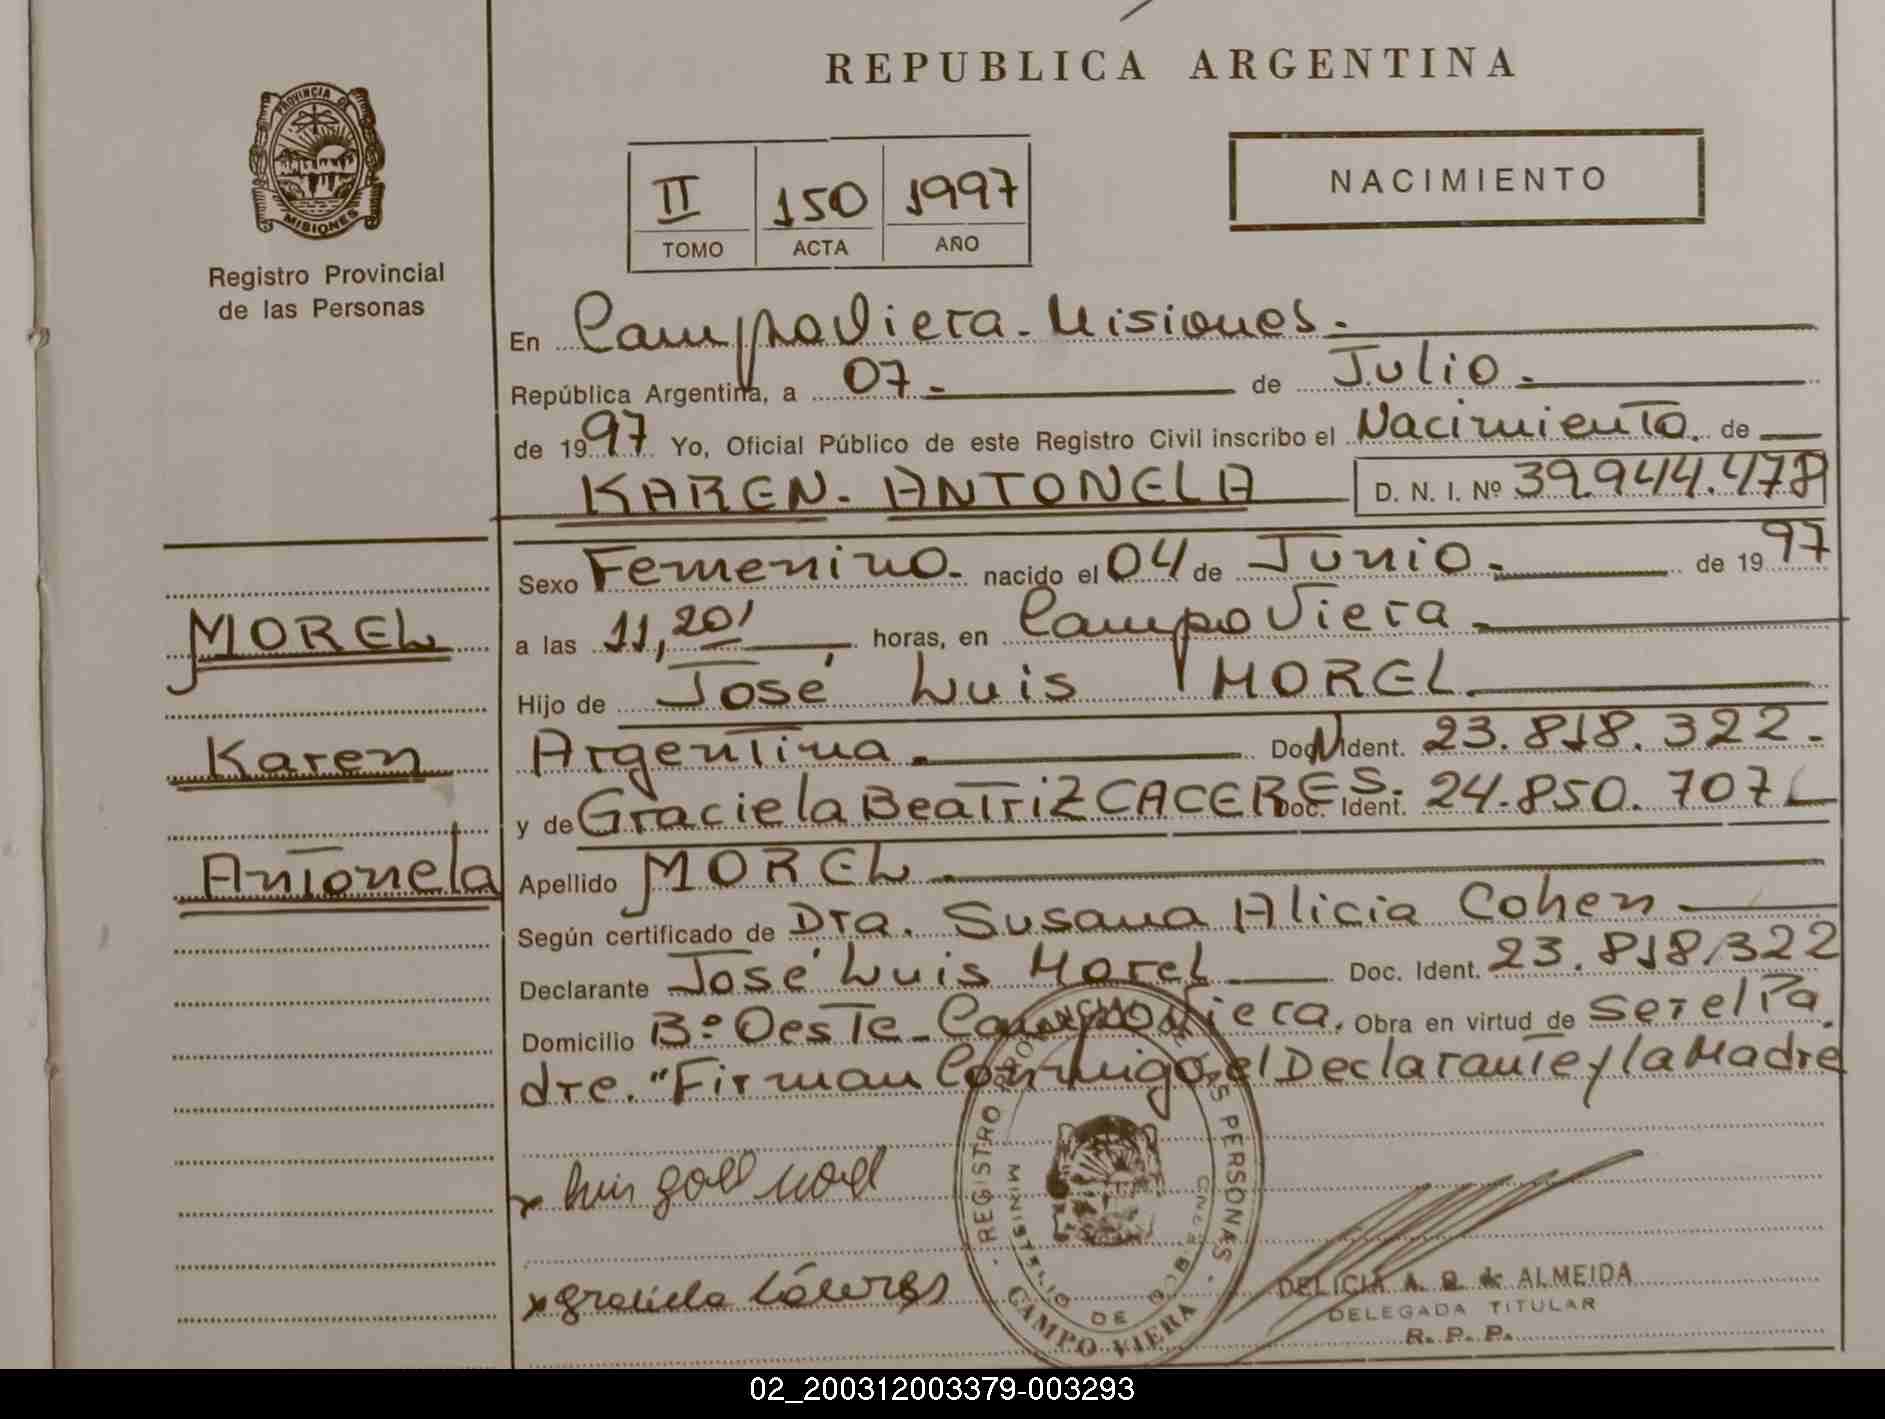 REPUBLICA ARGENTINA
PROVINCIA DE
MISIONES
Registro Provincial
de las Personas
II 150 1997
TOMO ACTA AÑO
NACIMIENTO
En Campo Viera - Misiones.-
República Argentina, a 07.- de Julio.-
de 1997 Yo, Oficial Público de este Registro Civil inscribo el Nacimiento. de
KAREN. ANTONELA D. N. I. Nº 39.944.478
Sexo Femenino.- nacido el 04 de Junio.- de 1997
a las 11,20' horas, en Campo Viera.-
Hijo de José Luis MOREL.-
Argentina.- Doc N Ident. 23.818.322.-
y de Graciela BeatriZ CACERES. Doc. Ident. 24.850.707
Apellido MOREL.-
Según certificado de Dra. Susana Alicia Cohen
Declarante José Luis Morel Doc. Ident. 23.818.322
Domicilio Bº Oeste - Campo Viera. Obra en virtud de ser el Pa
dre. "Firman Conmigo, el Declarante y la Madre
MOREL
Karen
Antonela
x graciela Cáceres
REGISTRO PROVINCIAL DE LAS PERSONAS
MINISTERIO DE
CAMPO VIERA
DELICIA A. de ALMEIDA
DELEGADA TITULAR
R. P. P.
02_200312003379-003293